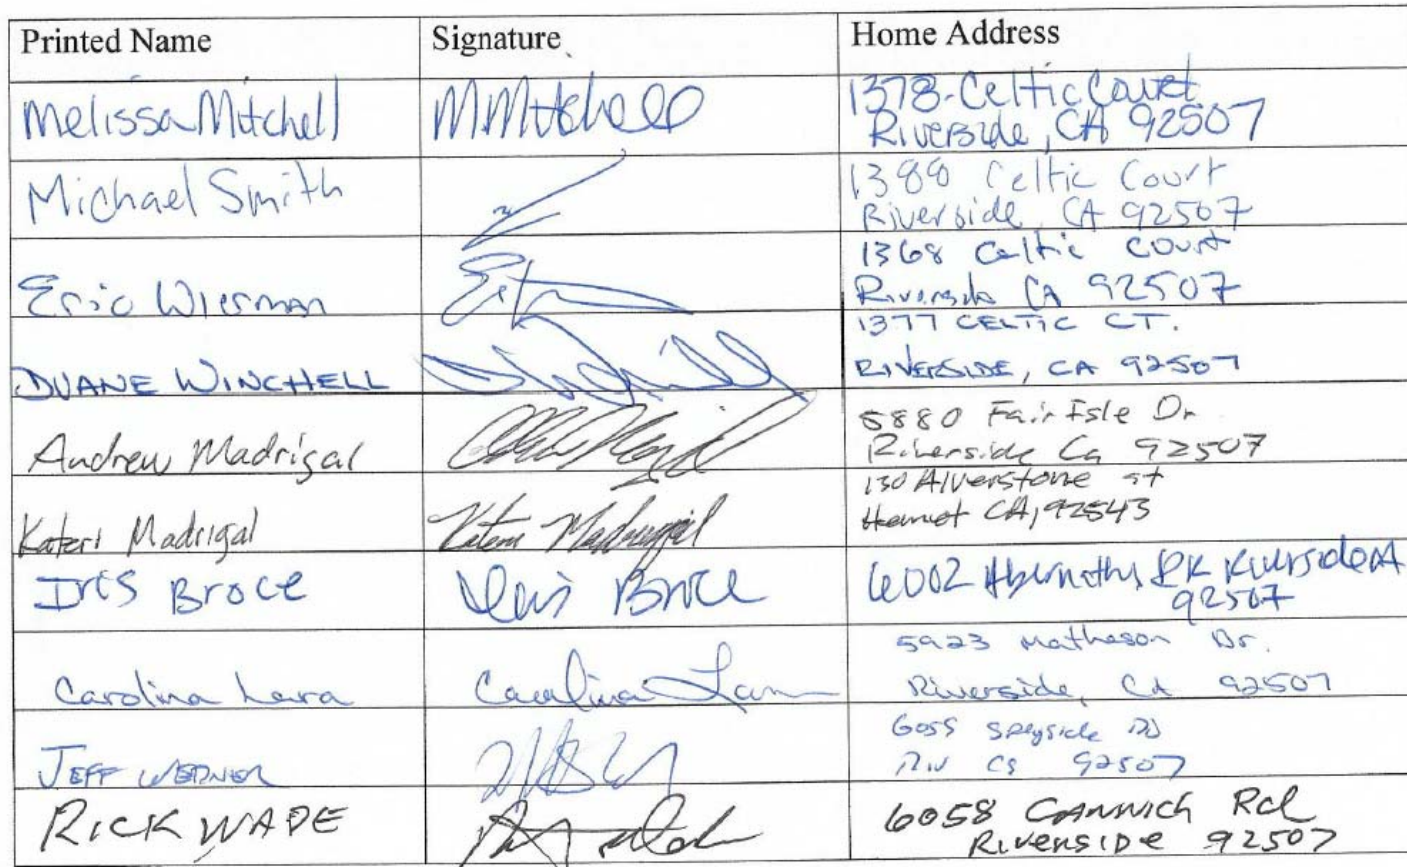 Printed Name Signature Home Address
Melissa Mitchell MMitchell 1378 Celtic Court
Riverside, CA 92507
Michael Smith 1388 Celtic Court
Riverside, CA 92507
Eric Wierman 1368 Celtic Court
Riverside CA 92507
DUANE WINCHELL 1377 CELTIC CT.
RIVERSIDE, CA 92507
Andrew Madrigal 5880 Fair Isle Dr
Riverside Ca 92507
Kateri Madrigal Kateri Madrigal 130 Alverstone st
Hemet CA, 92543
Iris Broce Iris Broce 6002 Abernathy DR Riverside CA
92507
Carolina Lara Carolina Lara 5923 Matheson Dr.
Riverside, CA 92507
JEFF 6055 Speyside RD
Riv Ca 92507
RICK WADE 6058 CANNICH Rd
RIVERSIDE 92507